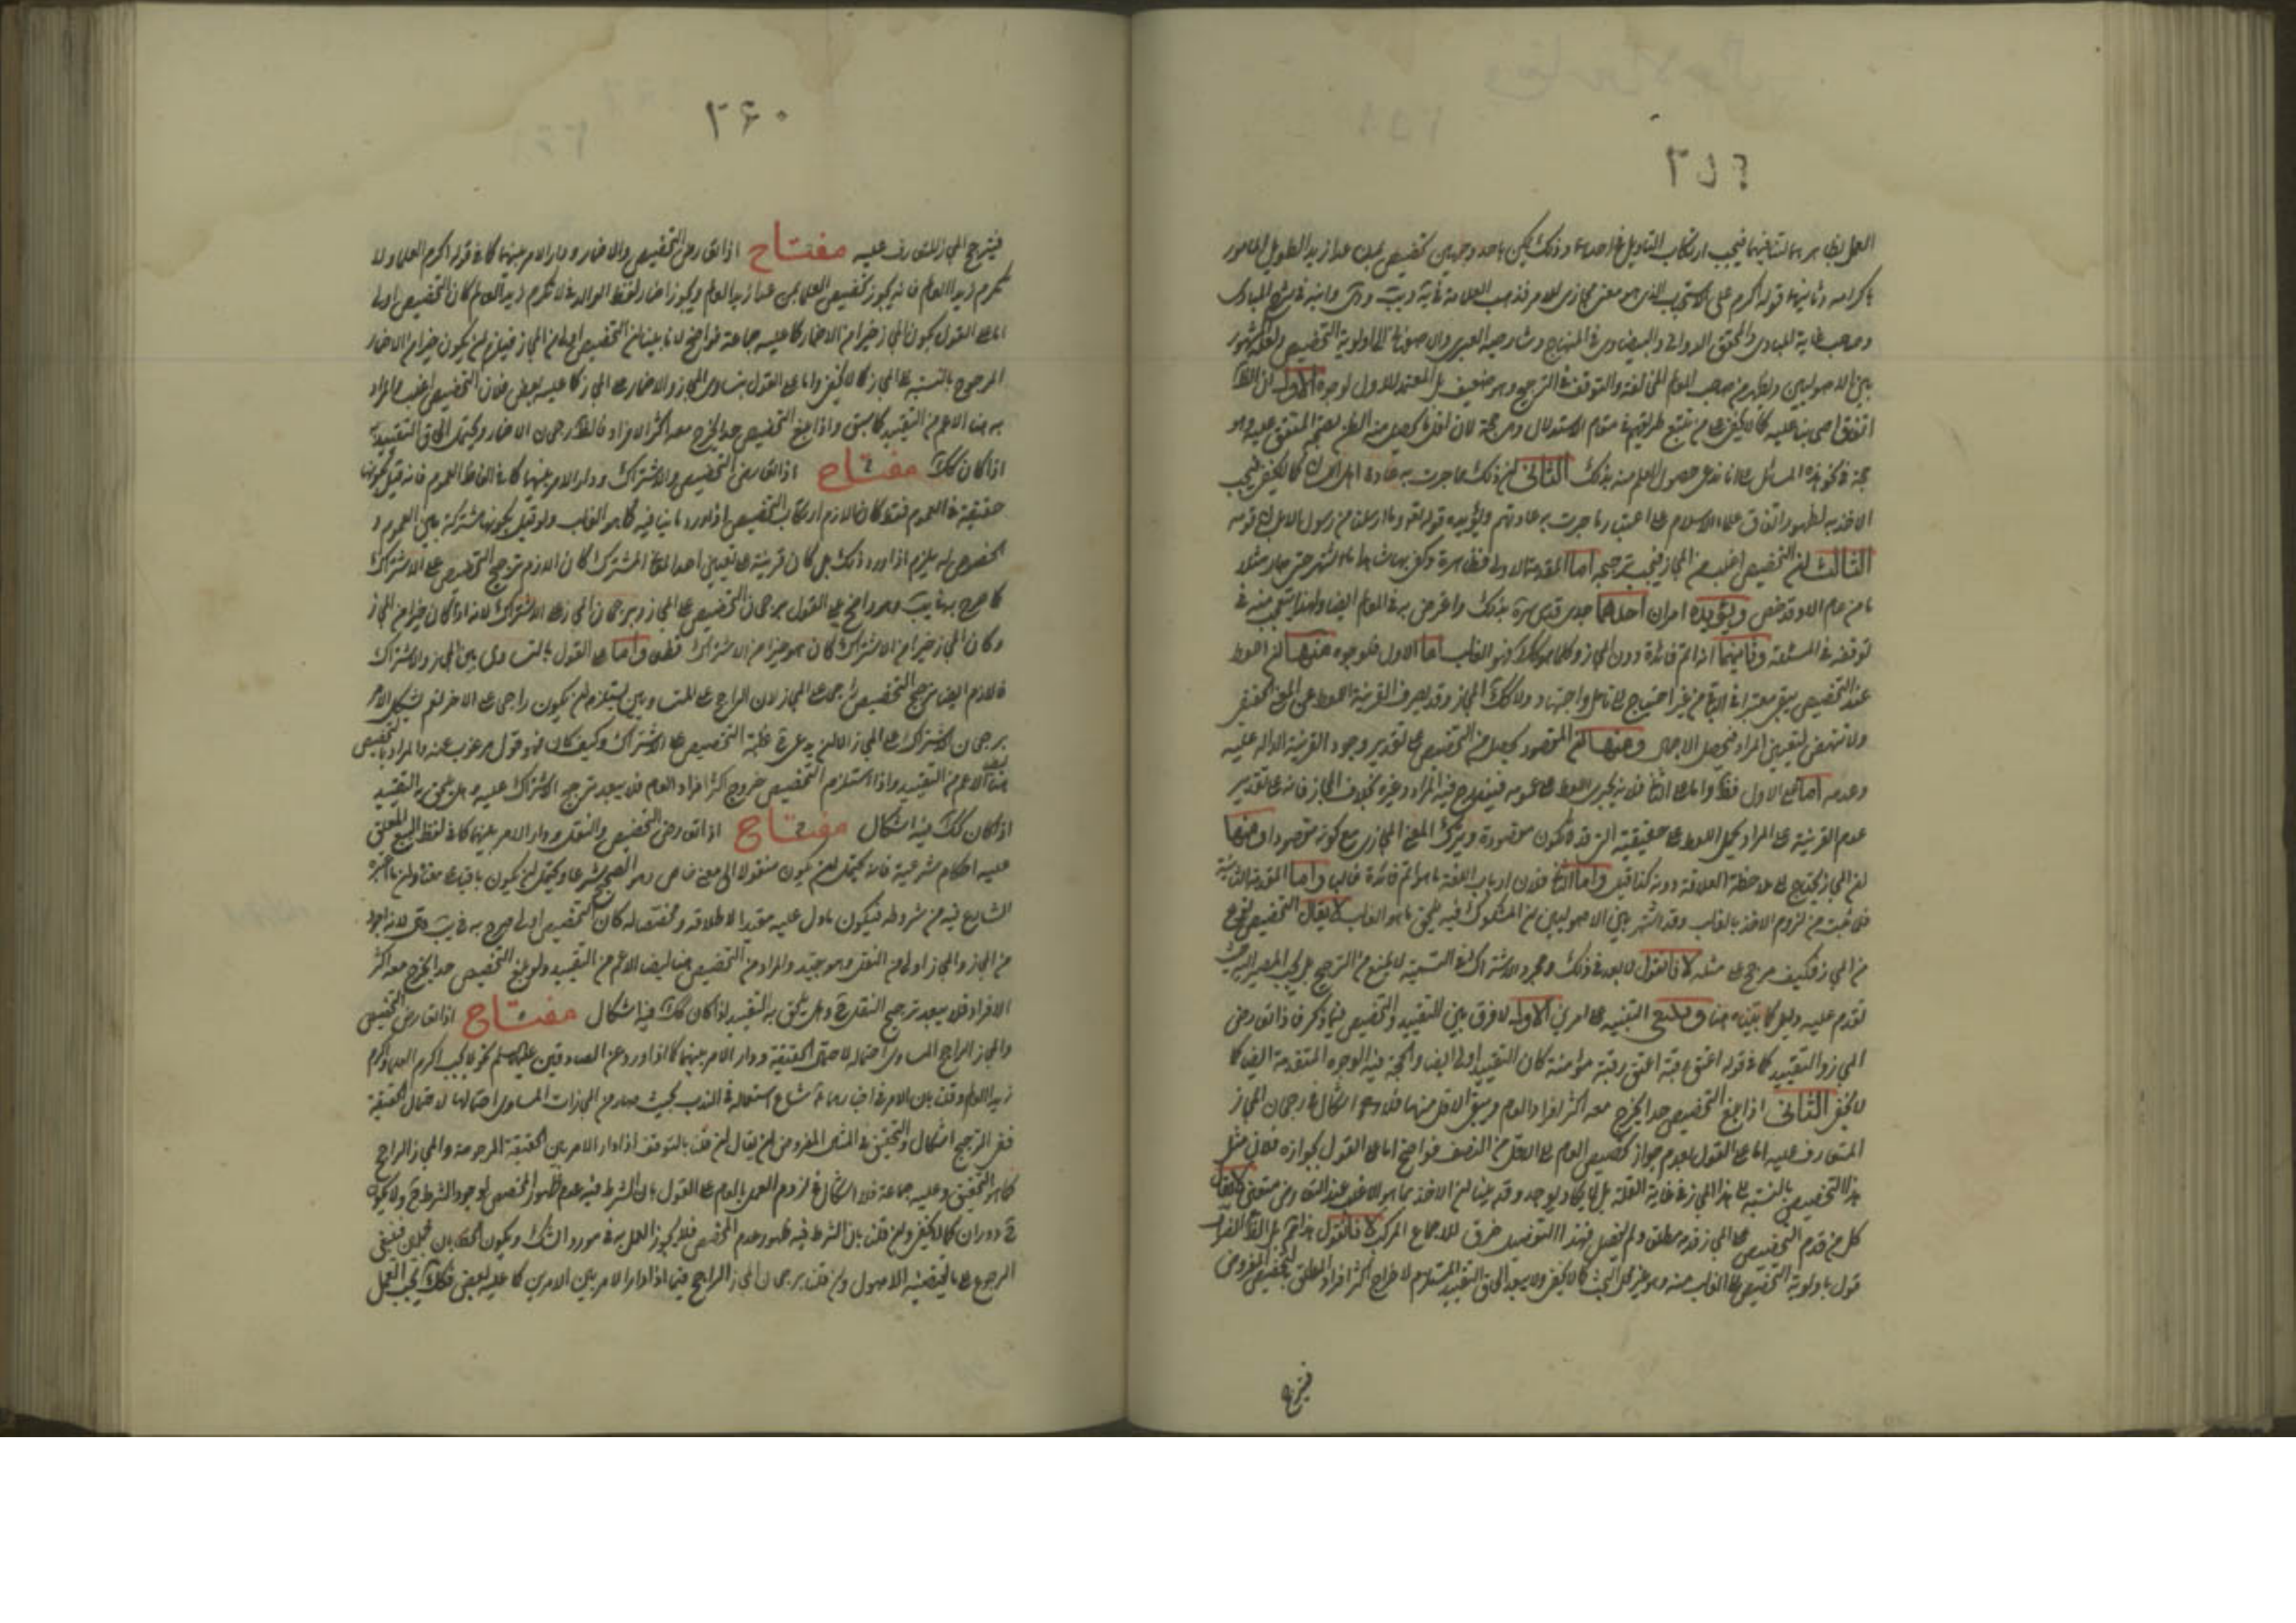 ٢٥٩
العمل بظاهرهما لتنافيهما فيجب ارتكاب التأويل في احدهما وذلك يمكن باحد وجهين تخصيص بمن عدا زيد الطويل المامور
باكرامه وثانيهما قوله اكرم على الاستحباب الذي هو معنى مجازي للامر فذهب العلامة في يه ويب ودي وابنه في شرح المبادي
وصاحب غاية المبادي والمحقق الدواني والبيضاوي في المنهاج وشارحيه العبري والاصفهاني الى اولوية التخصيص ولعله المشهور
بين الاصوليين وفي صاحب المعالم المخالفة والتوقف في الترجيح وهو ضعيف بل المعتمد للاول لوجوه الاول ان الظ
اتفاق اصحابنا عليه كما لا يخفى على من تتبع طرائقهم في مقام الاستدلال وهي حجة لان اقل ما يحصل منه الظن بصحة المتفق عليه وهو
حجة في نحو هذه المسائل بل لنا ندعى حصول العلم منه بذلك الثاني ان ذلك مما جرت به عادة اهل اللسان كما لا يخفى فيجب
الاخذ به لظهور اتفاق علماء الاسلام على اعتبار ما جرت به عادتهم ويؤيده قوله تعو وما ارسلنا من رسول الا بلسان قومه
الثالث ان التخصيص اغلب من المجاز فيجب ترجيحه اما المقدمة الاولى فظاهرة وكفى بها شاهدا ما اشتهر حتى صار مثلا
ما من عام الا وقد خص ويؤيده امران احدهما جدي قدس سره بذلك واعترض به في المعالم ايضا ولهذا تعجب منه في
توقفه في المسئلة وثانيهما انه اتم فائدة دون المجاز وكلما هو كك فهو الغالب اما الاول فلوجوه منها ان اللفظ
عند التخصيص يبقى معتبرا في الباقي من غير احتياج الى تأمل واجتهاد ولا كك المجاز وقد يصرف القرينة اللفظ عن المعنى الحقيقي
ولا تنهض لتعيين المراد فيحصل الاجمال ومنها ان المقصود يحصل من التخصيص على تقدير وجود القرينة الدالة عليه
وعدمه اما على الاول فظ واما على الثاني فلانه يجري اللفظ على عمومه فيندرج فيه المراد وغيره بخلاف المجاز فانه على تقدير
عدم القرينة على المراد يحمل اللفظ على حقيقته التي قد لا تكون مقصودة ويترك المعنى المجازي مع كونه مقصودا ومنها
ان المجاز يحتاج الى ملاحظة العلاقة دونه كذا قيل واما الثاني فلان ارباب اللغة ما هو اتم فائدة غالبا واما المقدمة الثانية
فلما ثبت من لزوم الاخذ بالغالب وقد اشتهر بين الاصوليين ان المشكوك فيه يلحق بما هو الغالب لا يقال التخصيص نوع
من المجاز فكيف يرجح على مثله لانا نقول لا بعد في ذلك ومجرد الاشتراك في التسمية لا يمنع من الترجيح بل يجب المصير اليه حيث
تقدم عليه دليل كما بيناه هنا وينبغي التنبيه على امرين الاول لا فرق بين التقييد والتخصيص فيما ذكر فاذا تعارض
المجاز والتقييد كما في قوله اعتق رقبة اعتق رقبة مؤمنة كان التقييد اولى ايضا والحجة فيه الوجوه المتقدمة ايضا كما
لا يخفى الثاني اذا بلغ التخصيص حدا يخرج معه اكثر افراد العام ويبقى الاقل منها فلا اشكال في رجحان المجاز
المتعارف عليه اما على القول بعدم جواز تخصيص العام الى الاقل من النصف فواضح اما على القول بجوازه فلان مثل
هذا التخصيص بالنسبة الى هذا المجاز في غاية القلة بل لا يكاد يوجد وقد بينا ان الاخذ بما هو الاغلب عند التعارض متعين لا يقال
كل من قدم التخصيص على المجاز قدمه مطلق ولم يفصل فهذا التفصيل خرق للاجماع المركب لانا نقول هذا ثم بل الظ انصراف
قول باولوية التخصيص الى الغالب منه وهو غير محل البحث كما لا يخفى ولا يبعد الحاق التقييد المستلزم لاخراج اكثر افراد المطلق بالتخصيص المفروض
فيترجح
٢٦٠
فيترجح المجاز المتعارف عليه مفتاح اذا تعارض التخصيص والاضمار ودار الامر بينهما كما في قوله اكرم العلماء ولا
تكرم زيد العالم فانه يجوز تخصيص العلماء بمن عدا زيد العالم ويجوز اضمار لفظ الوالد في لا تكرم زيد العالم كان التخصيص اولى
اما على القول بكون المجاز خيرا من الاضمار كما عليه جماعة فواضح لانا بينا ان التخصيص اولى من المجاز فيلزم ان يكون خيرا من الاضمار
المرجوح بالنسبة الى المجاز كما لا يخفى واما على القول بتساوي المجاز والاضمار على المجاز كما عليه بعض فلان التخصيص اغلب والمراد
به هنا الاعم من التقييد كما سبق واذا بلغ التخصيص حدا يخرج معه اكثر الافراد فالظ رجحان الاضمار ويحتمل الحاق التقييد به
اذا كان كك مفتاح اذا تعارض التخصيص والاشتراك ودار الامر بينهما كما في الفاظ العموم فانه قيل بكونها
حقيقة في العموم فقط كان اللازم ارتكاب التخصيص اذا ورد ما ينافيه كما هو الغالب ولو قيل بكونها مشتركة بين العموم و
الخصوص لم يلزم اذا ورد ذلك بل كان قرينة على تعيين احد المعاني المشترك كان اللازم ترجيح التخصيص على الاشتراك
كما صرح به في يب وهو واضح على القول برجحان التخصيص على المجاز وبرجحان المجاز على الاشتراك لانه اذا كان خيرا من المجاز
وكان المجاز خيرا من الاشتراك كان هو خيرا من الاشتراك قطعا واما على القول بالتساوي بين المجاز والاشتراك
فلازم ايضا ترجيح التخصيص الراجح على المجاز لان الراجح على المتساويين يستلزم ان يكون راجحا على الاخر نعم يشكل الامر
برجحان الاشتراك على المجاز الا ان يدعى غلبة التخصيص على الاشتراك وكيف كان فهو قول مرغوب عنه والمراد بالتخصيص
هنا ايضا الاعم من التقييد واذا استلزم التخصيص خروج اكثر افراد العام فلا يبعد ترجيح الاشتراك عليه وهل يلحق به التقييد
اذا كان كك فيه اشكال مفتاح اذا تعارض التخصيص والنقل ودار الامر بينهما كما في لفظ البيع المعلق
عليه احكام شرعية فانه يحتمل ان يكون منقولا الى معنى خاص وهو الصحيح شرعا ويحتمل ان يكون باقيا على معناه وان ما اعتبره
الشارع فيه من شروطه فيكون ما دل عليه مقيدا لاطلاقه ومخصصا له كان التخصيص اولى صرح به في يب ودي لانه اجود
من المجاز والمجاز اولى من النقل وهو جيد والمراد من التخصيص هنا ايضا الاعم من التقييد ولو بلغ التخصيص حدا يخرج معه اكثر
الافراد فلا يبعد ترجيح النقل ح وهل يلحق به التقييد اذا كان كك فيه اشكال مفتاح اذا تعارض التخصيص
والمجاز الراجح المساوي احتماله لاحتمال الحقيقة ودار الامر بينهما كما اذا ورد عن الصادقين عليهما السلم نحو لا يجب اكرام العلماء واكرم
زيد العالم وقلنا بان الامر في اخبارهما شاع استعماله في الندب بحيث صار من المجازات المساوي احتمالها لاحتمال الحقيقة
ففي الترجيح اشكال والتحقيق في المثال المفروض ان يقال ان قلنا بالتوقف اذا دار الامر بين الحقيقة المرجوحة والمجاز الراجح
كما هو التحقيق وعليه جماعة فلا اشكال في لزوم العمل بالعام على القول بان الشرط فيه عدم ظهور المخصص لوجود الشرط ح ولا يكون
ح دوران كما لا يخفى وان قلنا بان الشرط فيه ظهور عدم المخصص فلا يجوز العمل به في مورد الشك ويكون الخطابان مجملين فينبغي
الرجوع الى ما يقتضيه الاصول وان قلنا برجحان المجاز الراجح فيما اذا دار الامر بين الامرين كما عليه بعض فكك يجب العمل